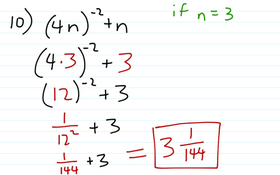 10) (4n)⁻² + n if n = 3
(4·3)⁻² + 3
(12)⁻² + 3
1/12² + 3
1/144 + 3 = 3 1/144